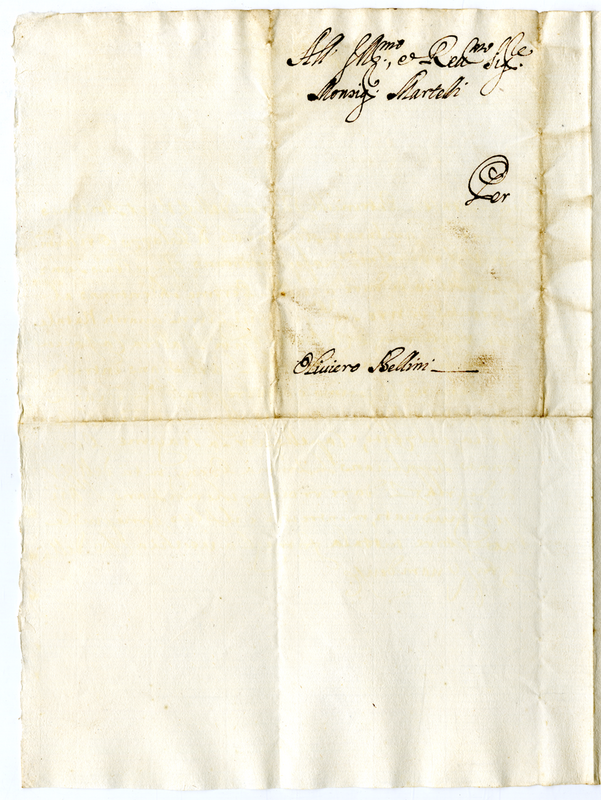 All' Ill:mo, et Reu:mo Sig:re
Monsig:r Martelli
Per
Oliuiero Bellini